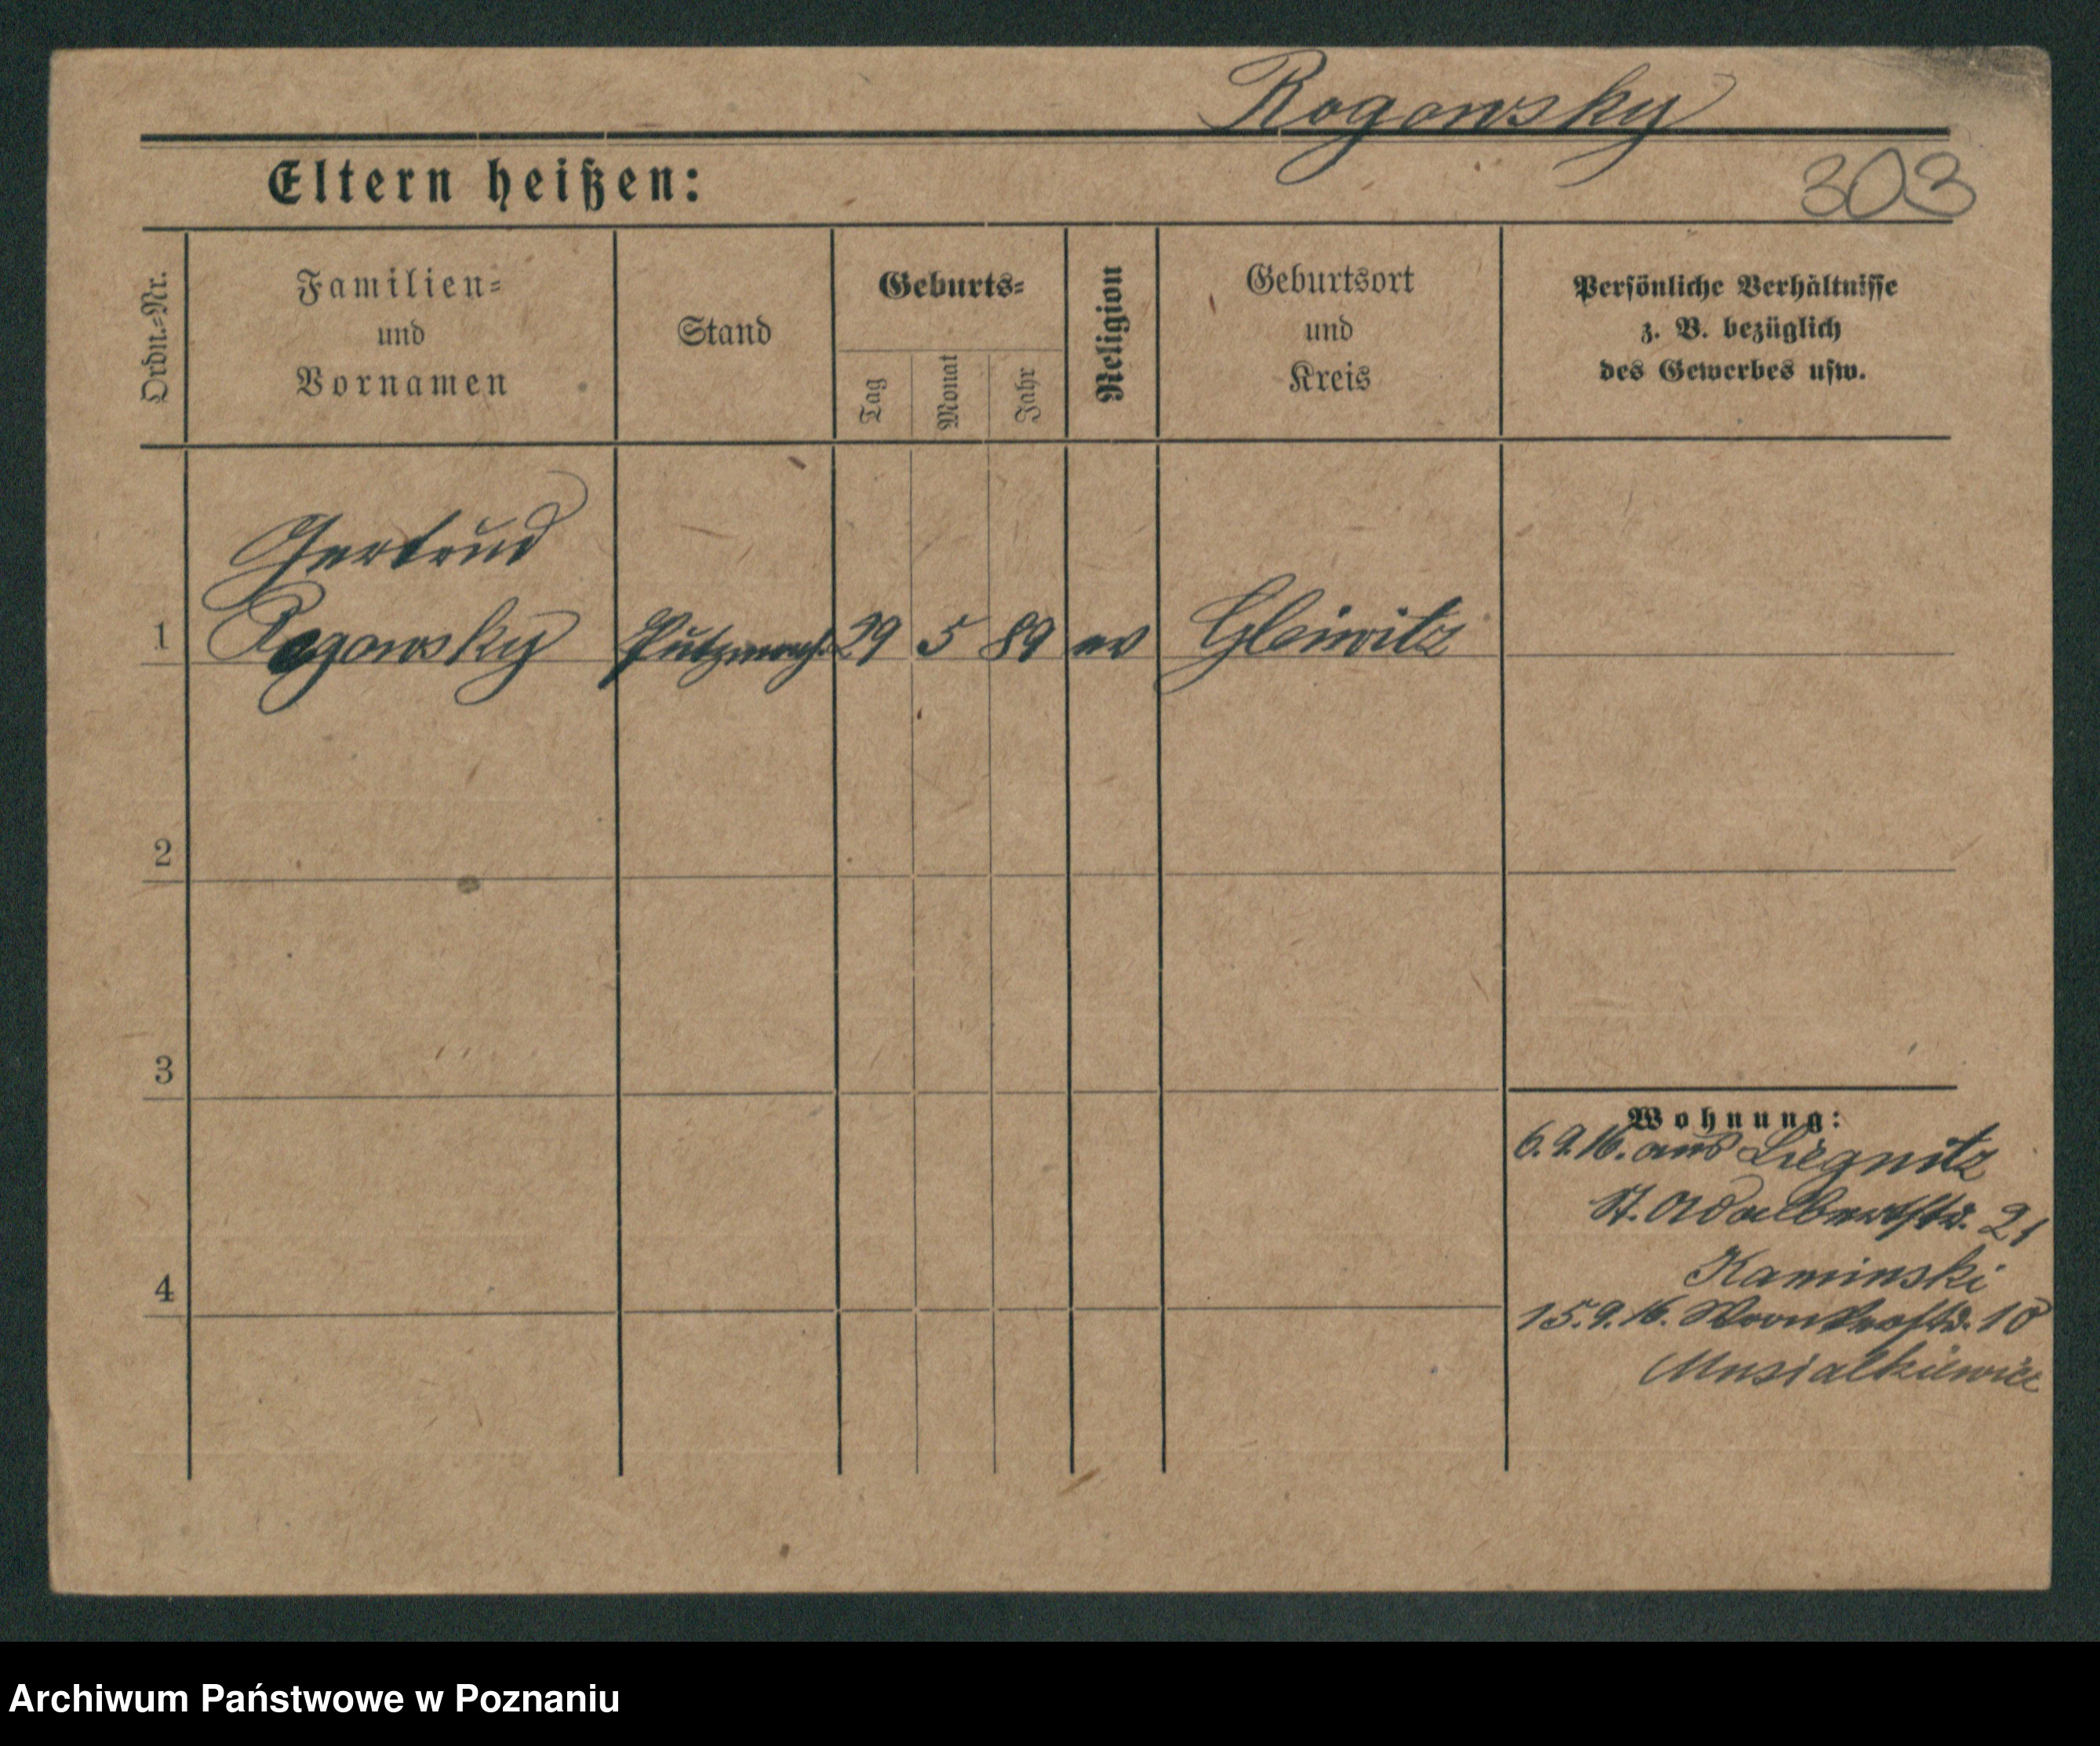 Rogowsky
Eltern heißen:
303
Ordn.-Nr.
Familien-
und
Vornamen
Stand
Geburts-
Tag
Monat
Jahr
Religion
Geburtsort
und
Kreis
Persönliche Verhältnisse
z. B. bezüglich
des Gewerbes usw.
Gertrud
1 Rogowsky Putzmach. 29 5 89 ev Gleiwitz
2
3
Wohnung:
6.9.16. aus Liegnitz
St. Adalbertstr. 21
Kaminski
4
15.9.16. Wronkerstr. 10
Musialkiewicz
Archiwum Państwowe w Poznaniu